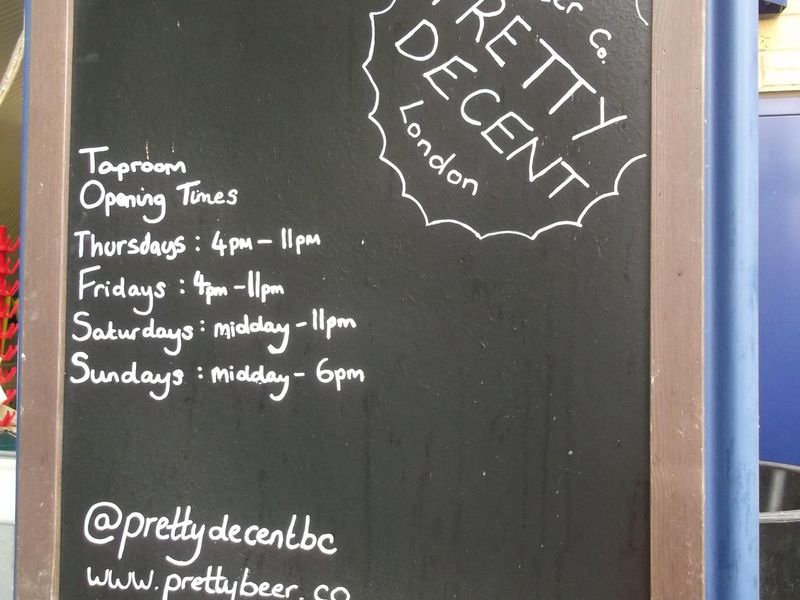 Co.
PRETTY
DECENT
London
Taproom
Opening Times
Thursdays : 4pm - 11pm
Fridays : 4pm - 11pm
Saturdays : midday - 11pm
Sundays : midday - 6pm
@prettydecentbc
www.prettybeer.co